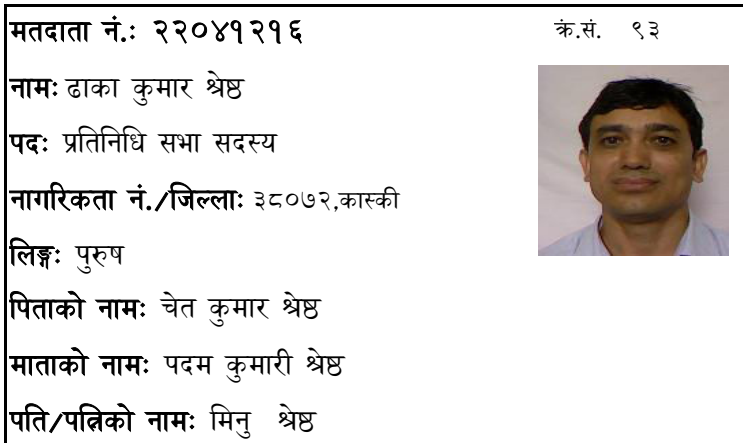 मतदाता नं.: २२०४१२१६ क्रं.सं. ९३
नामः ढाका कुमार श्रेष्ठ
पदः प्रतिनिधि सभा सदस्य
नागरिकता नं./जिल्लाः ३८०७२,कास्की
लिङ्गः पुरुष
पिताको नामः चेत कुमार श्रेष्ठ
माताको नामः पदम कुमारी श्रेष्ठ
पति/पत्निको नामः मिनु श्रेष्ठ